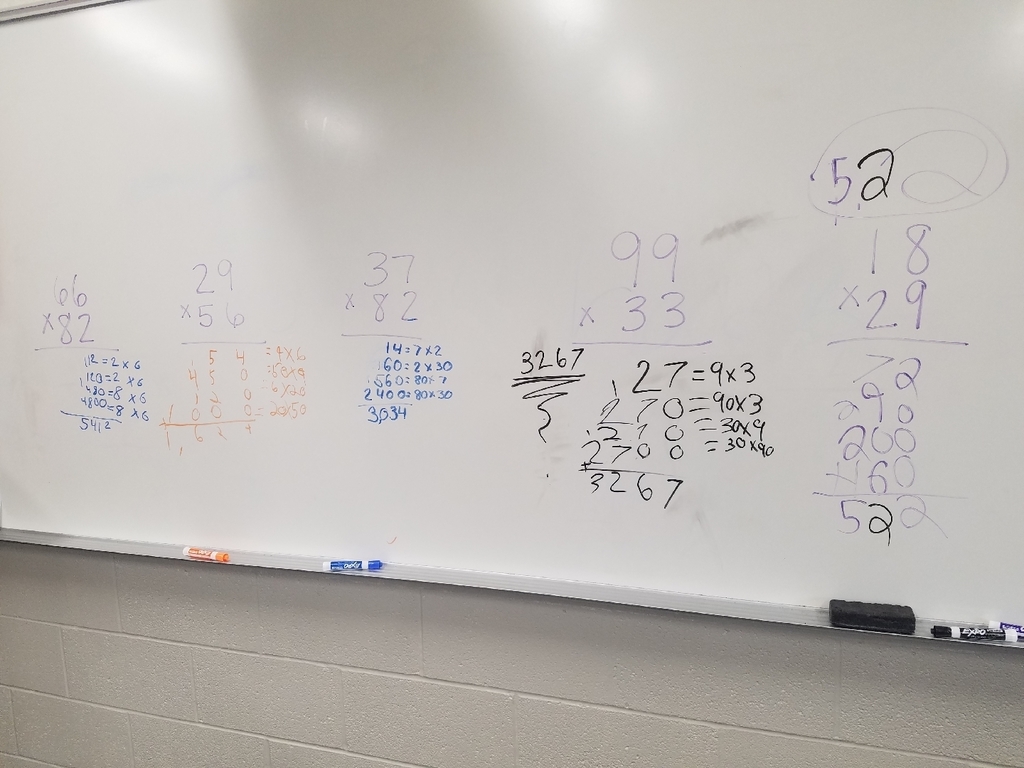 66
×82
112=2×6
120=2×6
480=8×6
4800=8×6
5412
29
×56
54
450
=6×20
1624
37
×82
14=7×2
160=2×30
560=80×7
2400=80×30
3,034
99
×33
3267
127=9×3
270=90×3
270=30×9
+2700=30×90
3267
522
18
×29
72
290
200
160
522
EXPO
EXPO
EXPO